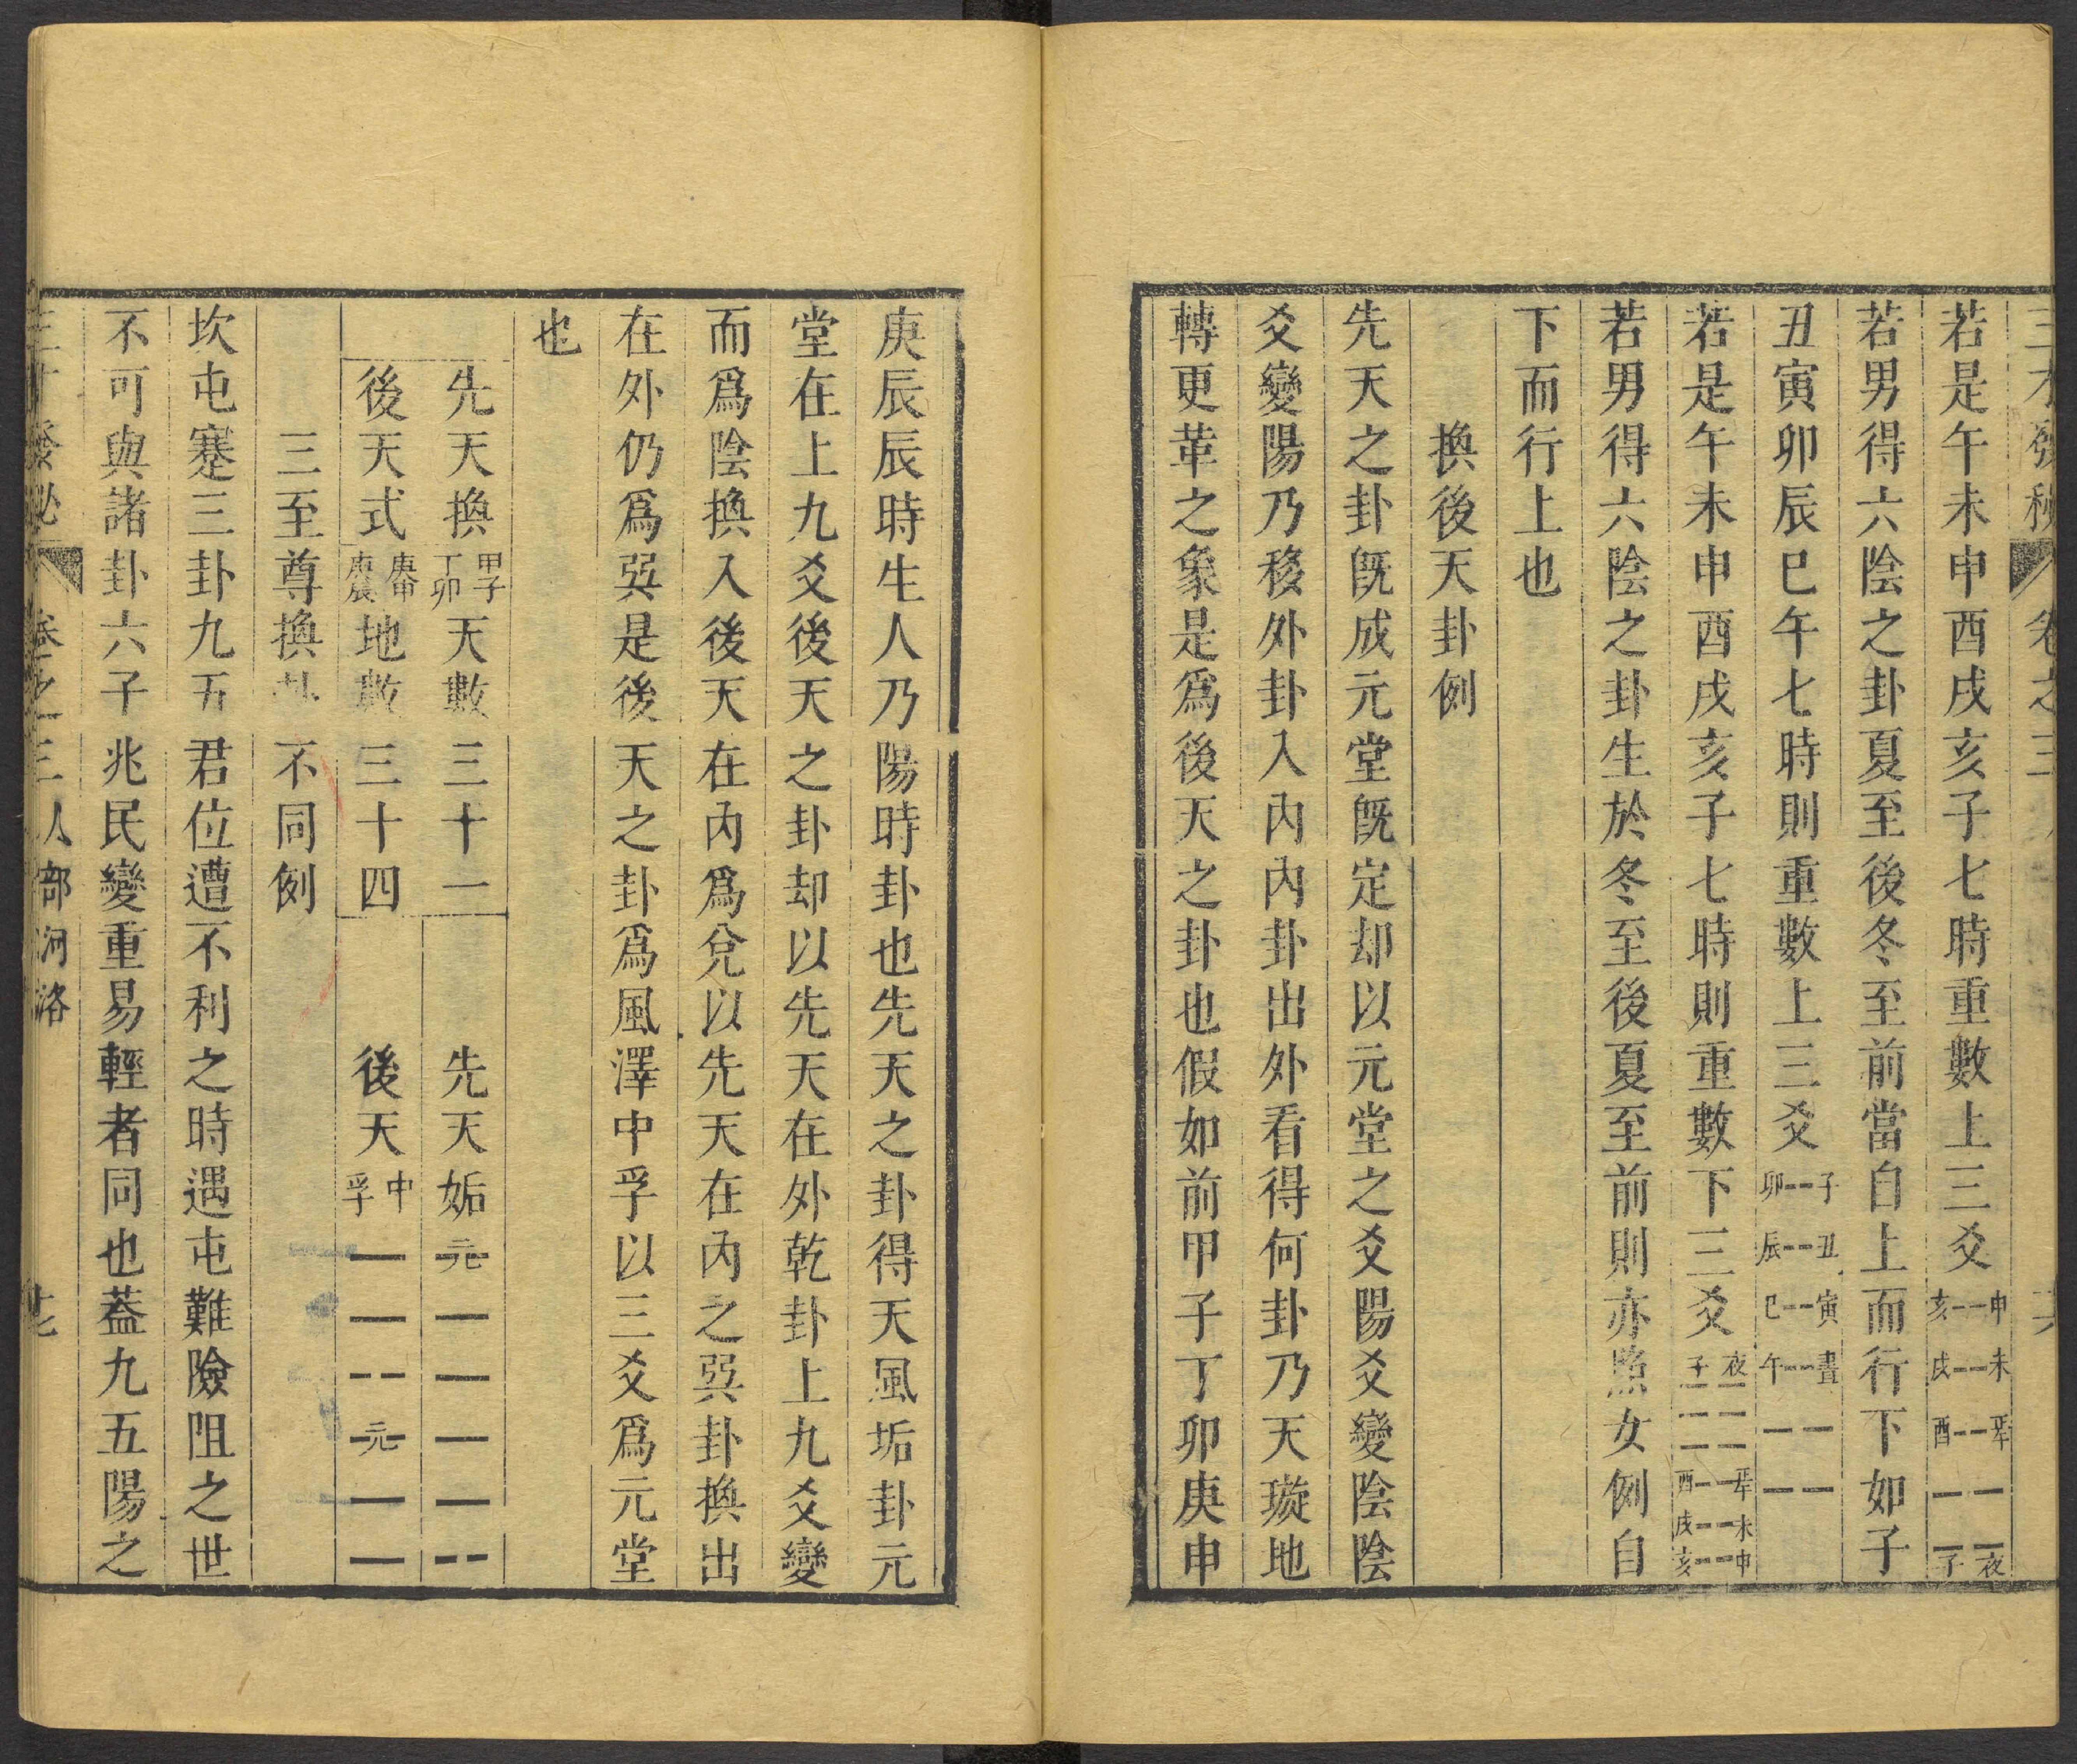 三才發秘 卷之三
若是午未申酉戌亥子七時重數上三爻 申亥 未戌 酉 夜子
若男得六陰之卦夏至後冬至前當自上而行下如子
丑寅卯辰巳午七時則重數上三爻 子卯 丑辰 寅巳 晝午
若是午未申酉戌亥子七時則重數下三爻 夜子 酉 未戌 申亥
若男得六陰之卦生於冬至後夏至前則亦照女例自
下而行上也
換後天卦例
先天之卦旣成元堂旣定却以元堂之爻陽爻變陰陰
爻變陽乃移外卦入內內卦出外看得何卦乃天璇地
轉更革之象是爲後天之卦也假如前甲子丁卯庚申
庚辰辰時生人乃陽時卦也先天之卦得天風垢卦元
堂在上九爻後天之卦却以先天在外乾卦上九爻變
而爲陰換入後天在內爲兌以先天在內之巽卦換出
在外仍爲巽是後天之卦爲風澤中孚以三爻爲元堂
也
先天換 甲子丁卯 天數三十一 先天姤 元
後天式 庚申庚辰 地數三十四 後天中孚 元
三至尊換卦不同例
坎屯蹇三卦九五君位遭不利之時遇屯難險阻之世
不可與諸卦六子兆民變重易輕者同也蓋九五陽之
三才發秘 卷之三人部河洛